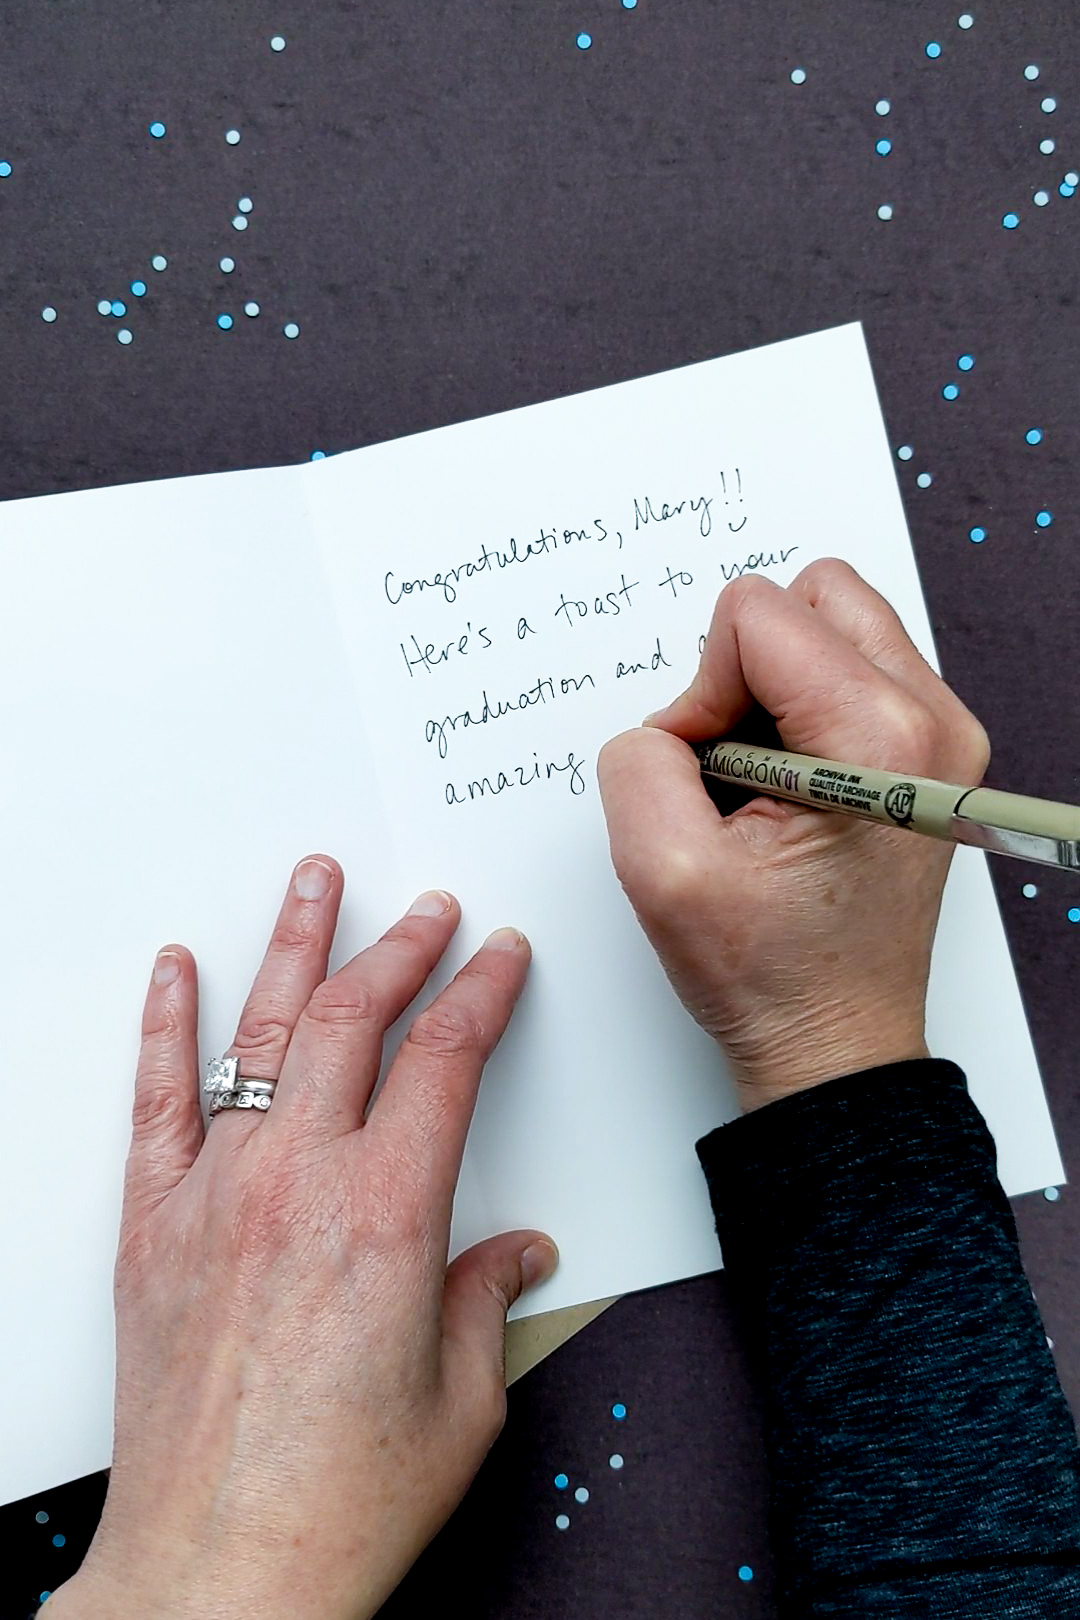 Congratulations, Mary!!
Here's a toast to your
graduation and
amazing
PIGMA
MICRON 01
ARCHIVAL INK
QUALITÉ D'ARCHIVAGE
TINTA DE ARCHIVE
AP